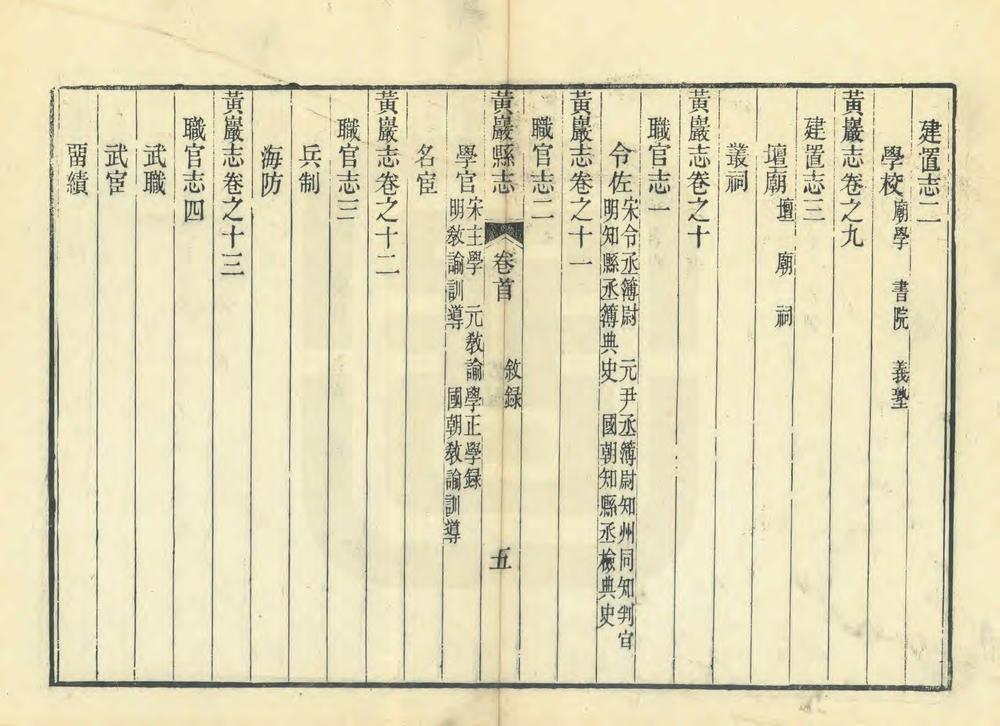 建置志二
學校廟學　書院　義塾
黃巖志卷之九
建置志三
壇廟壇　廟　祠
叢祠
黃巖志卷之十
職官志一
令佐宋令丞簿尉　元尹丞簿尉知州同知判官
明知縣丞簿典史　國朝知縣丞檢典史
黃巖志卷之十一
職官志二
黃巖縣志　卷首　敘録　五
學官宋主學　元敎諭學正學録
明敎諭訓導　國朝敎諭訓導
名宦
黃巖志卷之十二
職官志三
兵制
海防
黃巖志卷之十三
職官志四
武職
武宦
畱績